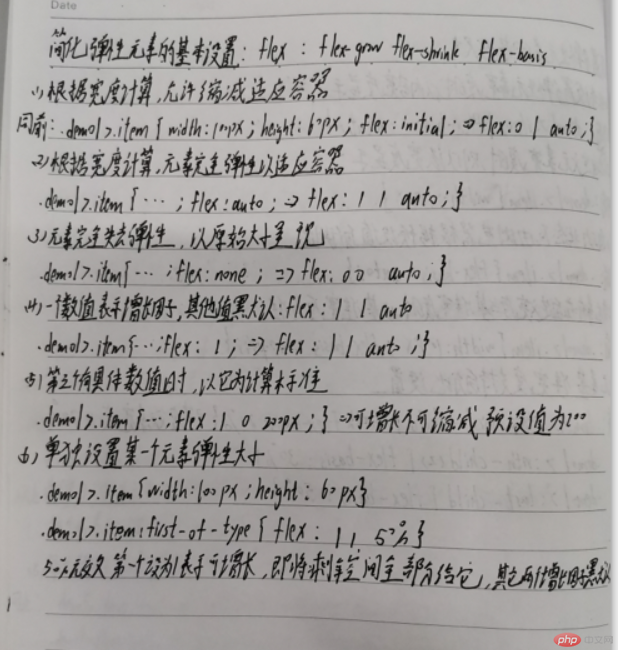 Date
简化弹性元素的基本设置: flex : flex-grow flex-shrink flex-basis
(1) 根据宽度计算,允许缩减适应容器
同前: .demo1>.item { width:100px; height:60px; flex:initial; => flex:0 1 auto;}
(2) 根据宽度计算,元素完全弹性以适应容器
.demo1>.item { … ; flex:auto; => flex: 1 1 auto;}
(3) 元素完全失去弹性, 以原始大小呈现
.demo1>.item{ … ;flex:none ; => flex: 0 0 auto;}
(4) 一个数值表示增长因子,其他值默认:flex: 1 1 auto
.demo1>.item{…;flex: 1; => flex: 1 1 auto ;}
(5) 第三个有具体数值时, 以它为计算标准
.demo1>.item {…;flex:1 0 200px;} =>可增长不可缩减 预设值为200
(6) 单独设置某一个元素弹性大小
.demo1>.item{width:100px;height:60px}
.demo1>.item:first-of-type { flex: 1 1 50%}
第一个设为1表示可增长, 即将剩余空间全部分给它, 其它两个增长因子默认
php